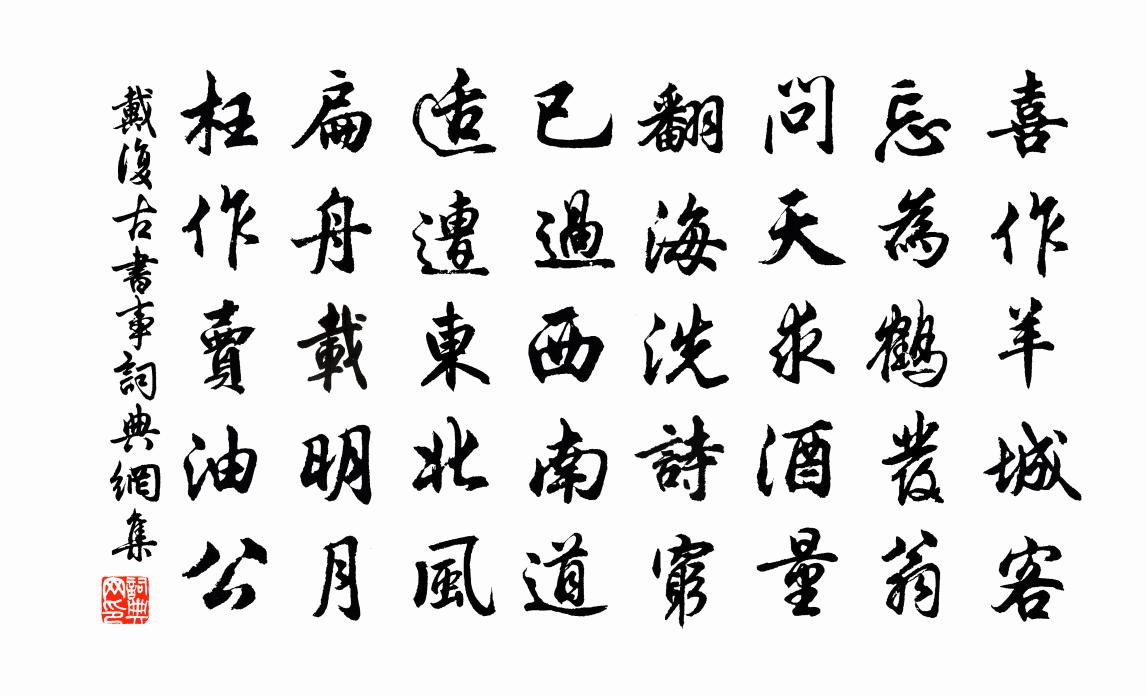 喜作羊城客
忘為鶴發翁
問天求酒量
翻海洗詩窮
已過西南道
适遭東北風
扁舟載明月
枉作賣油公
戴復古書事詞典網集
詞典网印